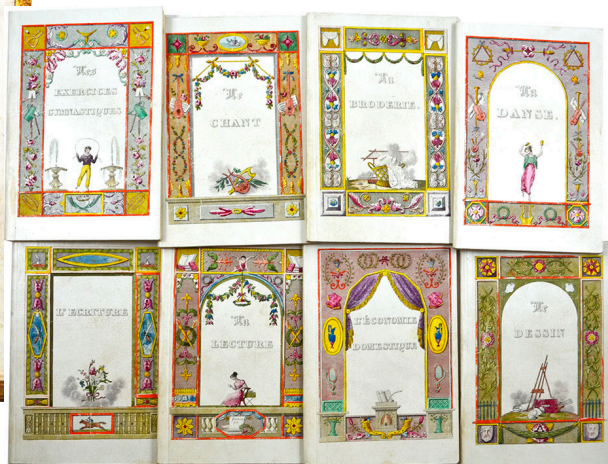 Les
EXERCICES
GYMNASTIQUES
Le
CHANT
La
BRODERIE.
La
DANSE.
L'ECRITURE
La
LECTURE
L'ÉCONOMIE
DOMESTIQUE
Le
DESSIN